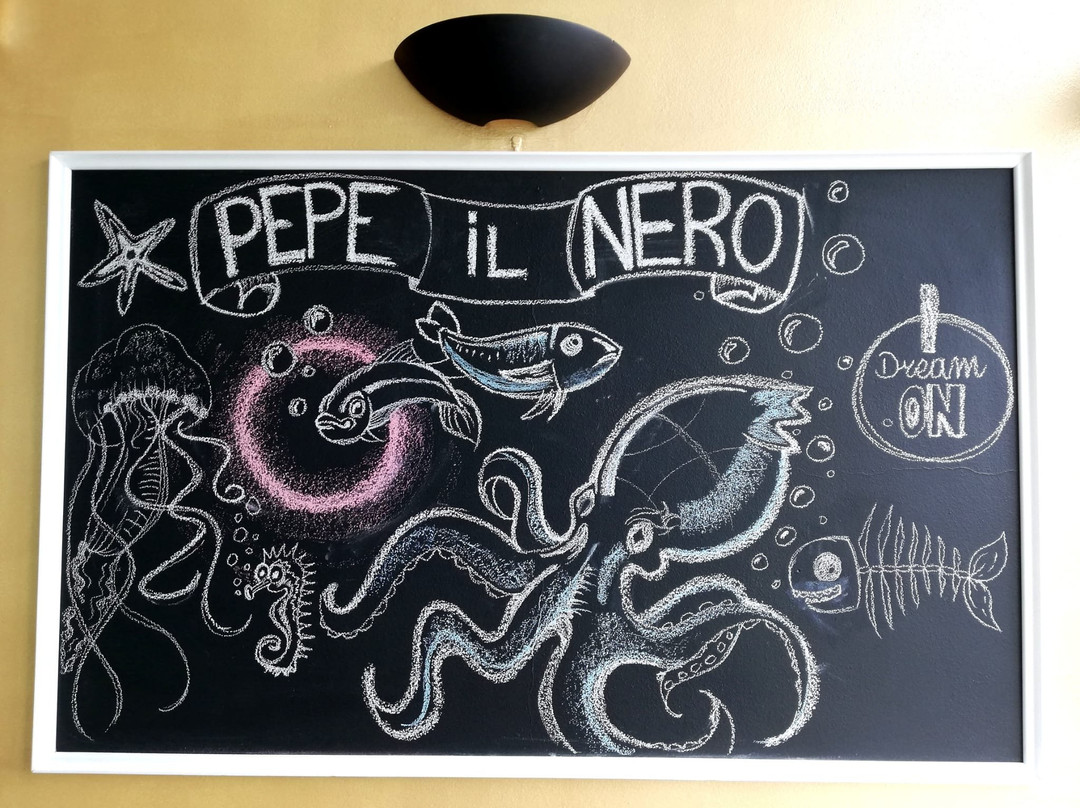 PEPE iL NERO
Dream
ON